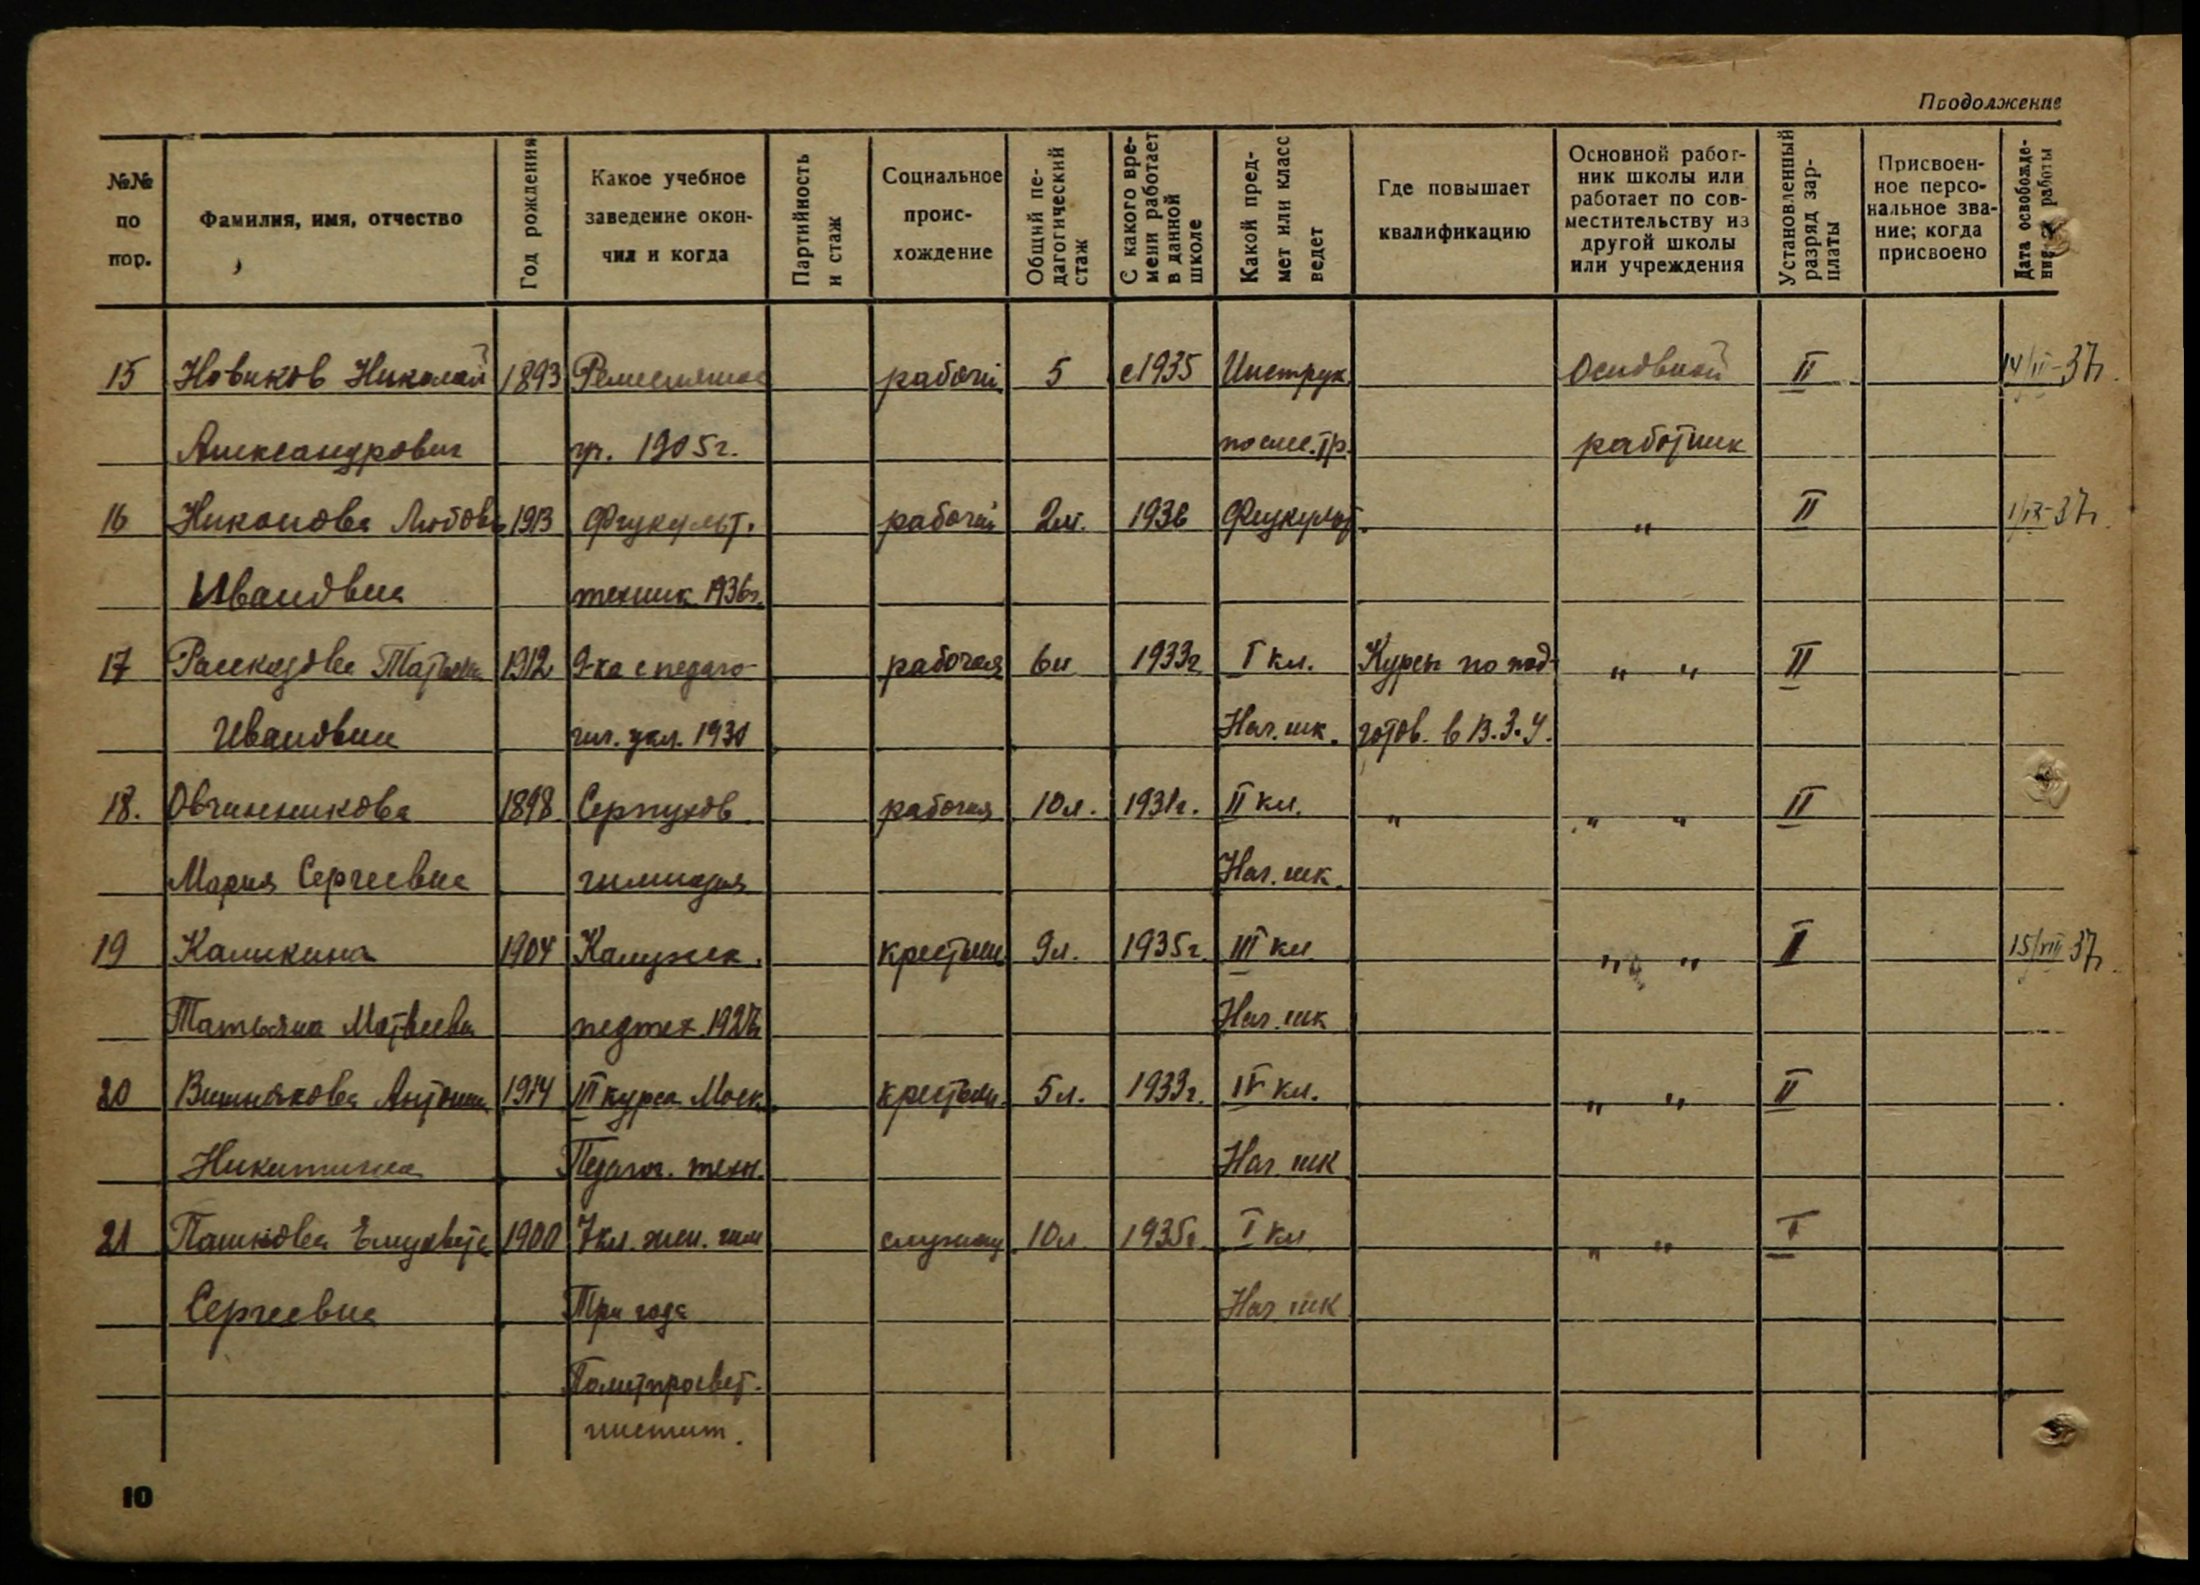 Продолжение
№№ по пор.
Фамилия, имя, отчество
Год рождения
Какое учебное заведение окончил и когда
Партийность и стаж
Социальное происхождение
Общий педагогический стаж
С какого времени работает в данной школе
Какой предмет или класс ведет
Где повышает квалификацию
Основной работник школы или работает по совместительству из другой школы или учреждения
Установленный разряд зарплаты
Присвоенное персональное звание; когда присвоено
Дата освобождения работы
15 Новиков Николай 1893 рабочий 5 с 1935 Инструк Основной II 14/II-37г.
Александрович 1905г. работник
16 Никонова Любовь 1913 Физкульт. рабочий 2м. 1936 Физкульт. " II 1/IX-37г.
Ивановна техник 1936г.
17 Рассказова Татьяна 1912 9-ка с педаго- рабочая 6л 1933г I кл. Курсы по под- " " II
Ивановна гич. укл. 1930 Нач. шк. готов. в В.З.У.
18. Овчинникова 1898 Серпухов. рабочая 10л. 1931г. II кл. " " " II
Мария Сергеевна гимназия Нач. шк.
19 Каликина 1904 Калужск. крестьян 9л. 1935г. III кл " " II 15/VIII 37г.
Татьяна Матвеевна педтех. Нач. шк
20 Вишнякова Антонина 1914 III курса Моск. крестьян. 5л. 1933г. IV кл. " " II
Никитична Педагог. техн. Нач. шк
21 Пашкова Елизавета 1900 7кл. жен. гим служащ 10л. 1935г. I кл " " I
Сергеевна Три года Нач. шк
Политпросвет.
институт.
10